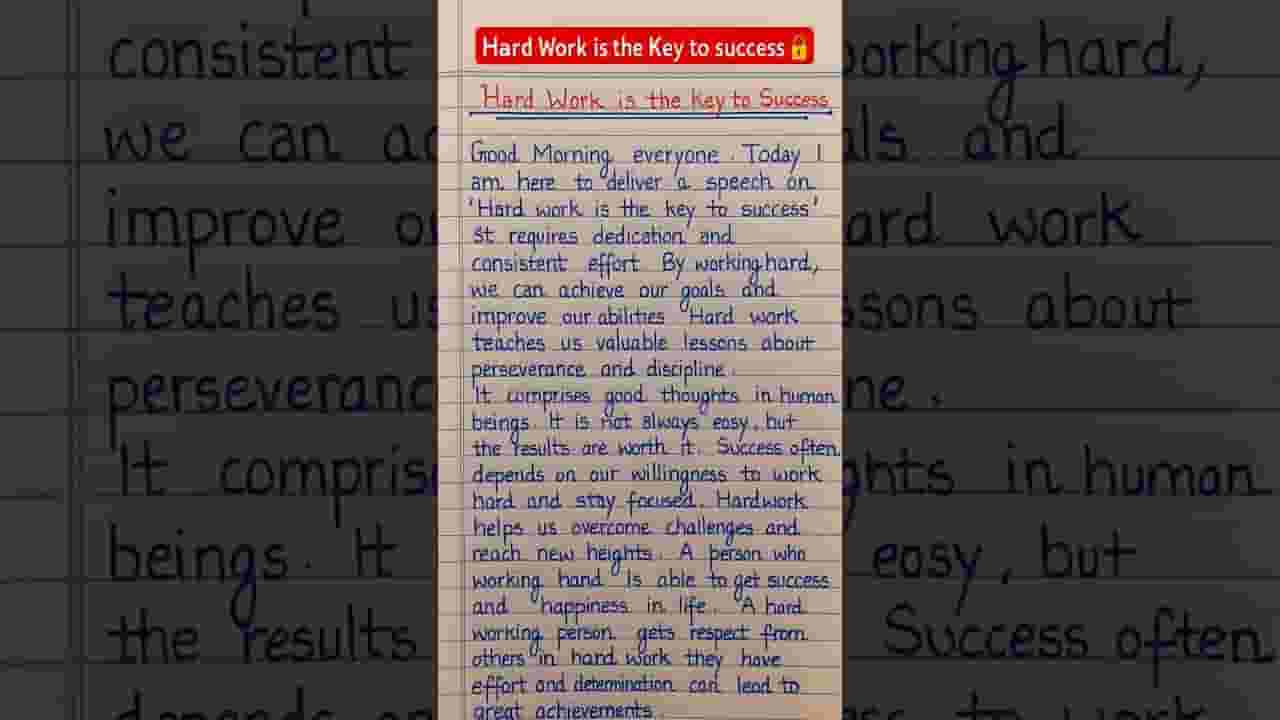 Hard Work is the Key to success
Hard Work is the Key to Success
Good Morning everyone. Today I
am here to deliver a speech on
'Hard work is the key to success'
It requires dedication and
consistent effort. By working hard,
we can achieve our goals and
improve our abilities Hard work
teaches us valuable lessons about
perseverance and discipline.
It comprises good thoughts in human
beings. It is not always easy, but
the results are worth it. Success often
depends on our willingness to work
hard and stay focused. Hardwork
helps us overcome challenges and
reach new heights. A person who
working hand is able to get success
and happiness in life. A hard
working person gets respect from
others in hard work they have
effort and determination can lead to
great achievements.